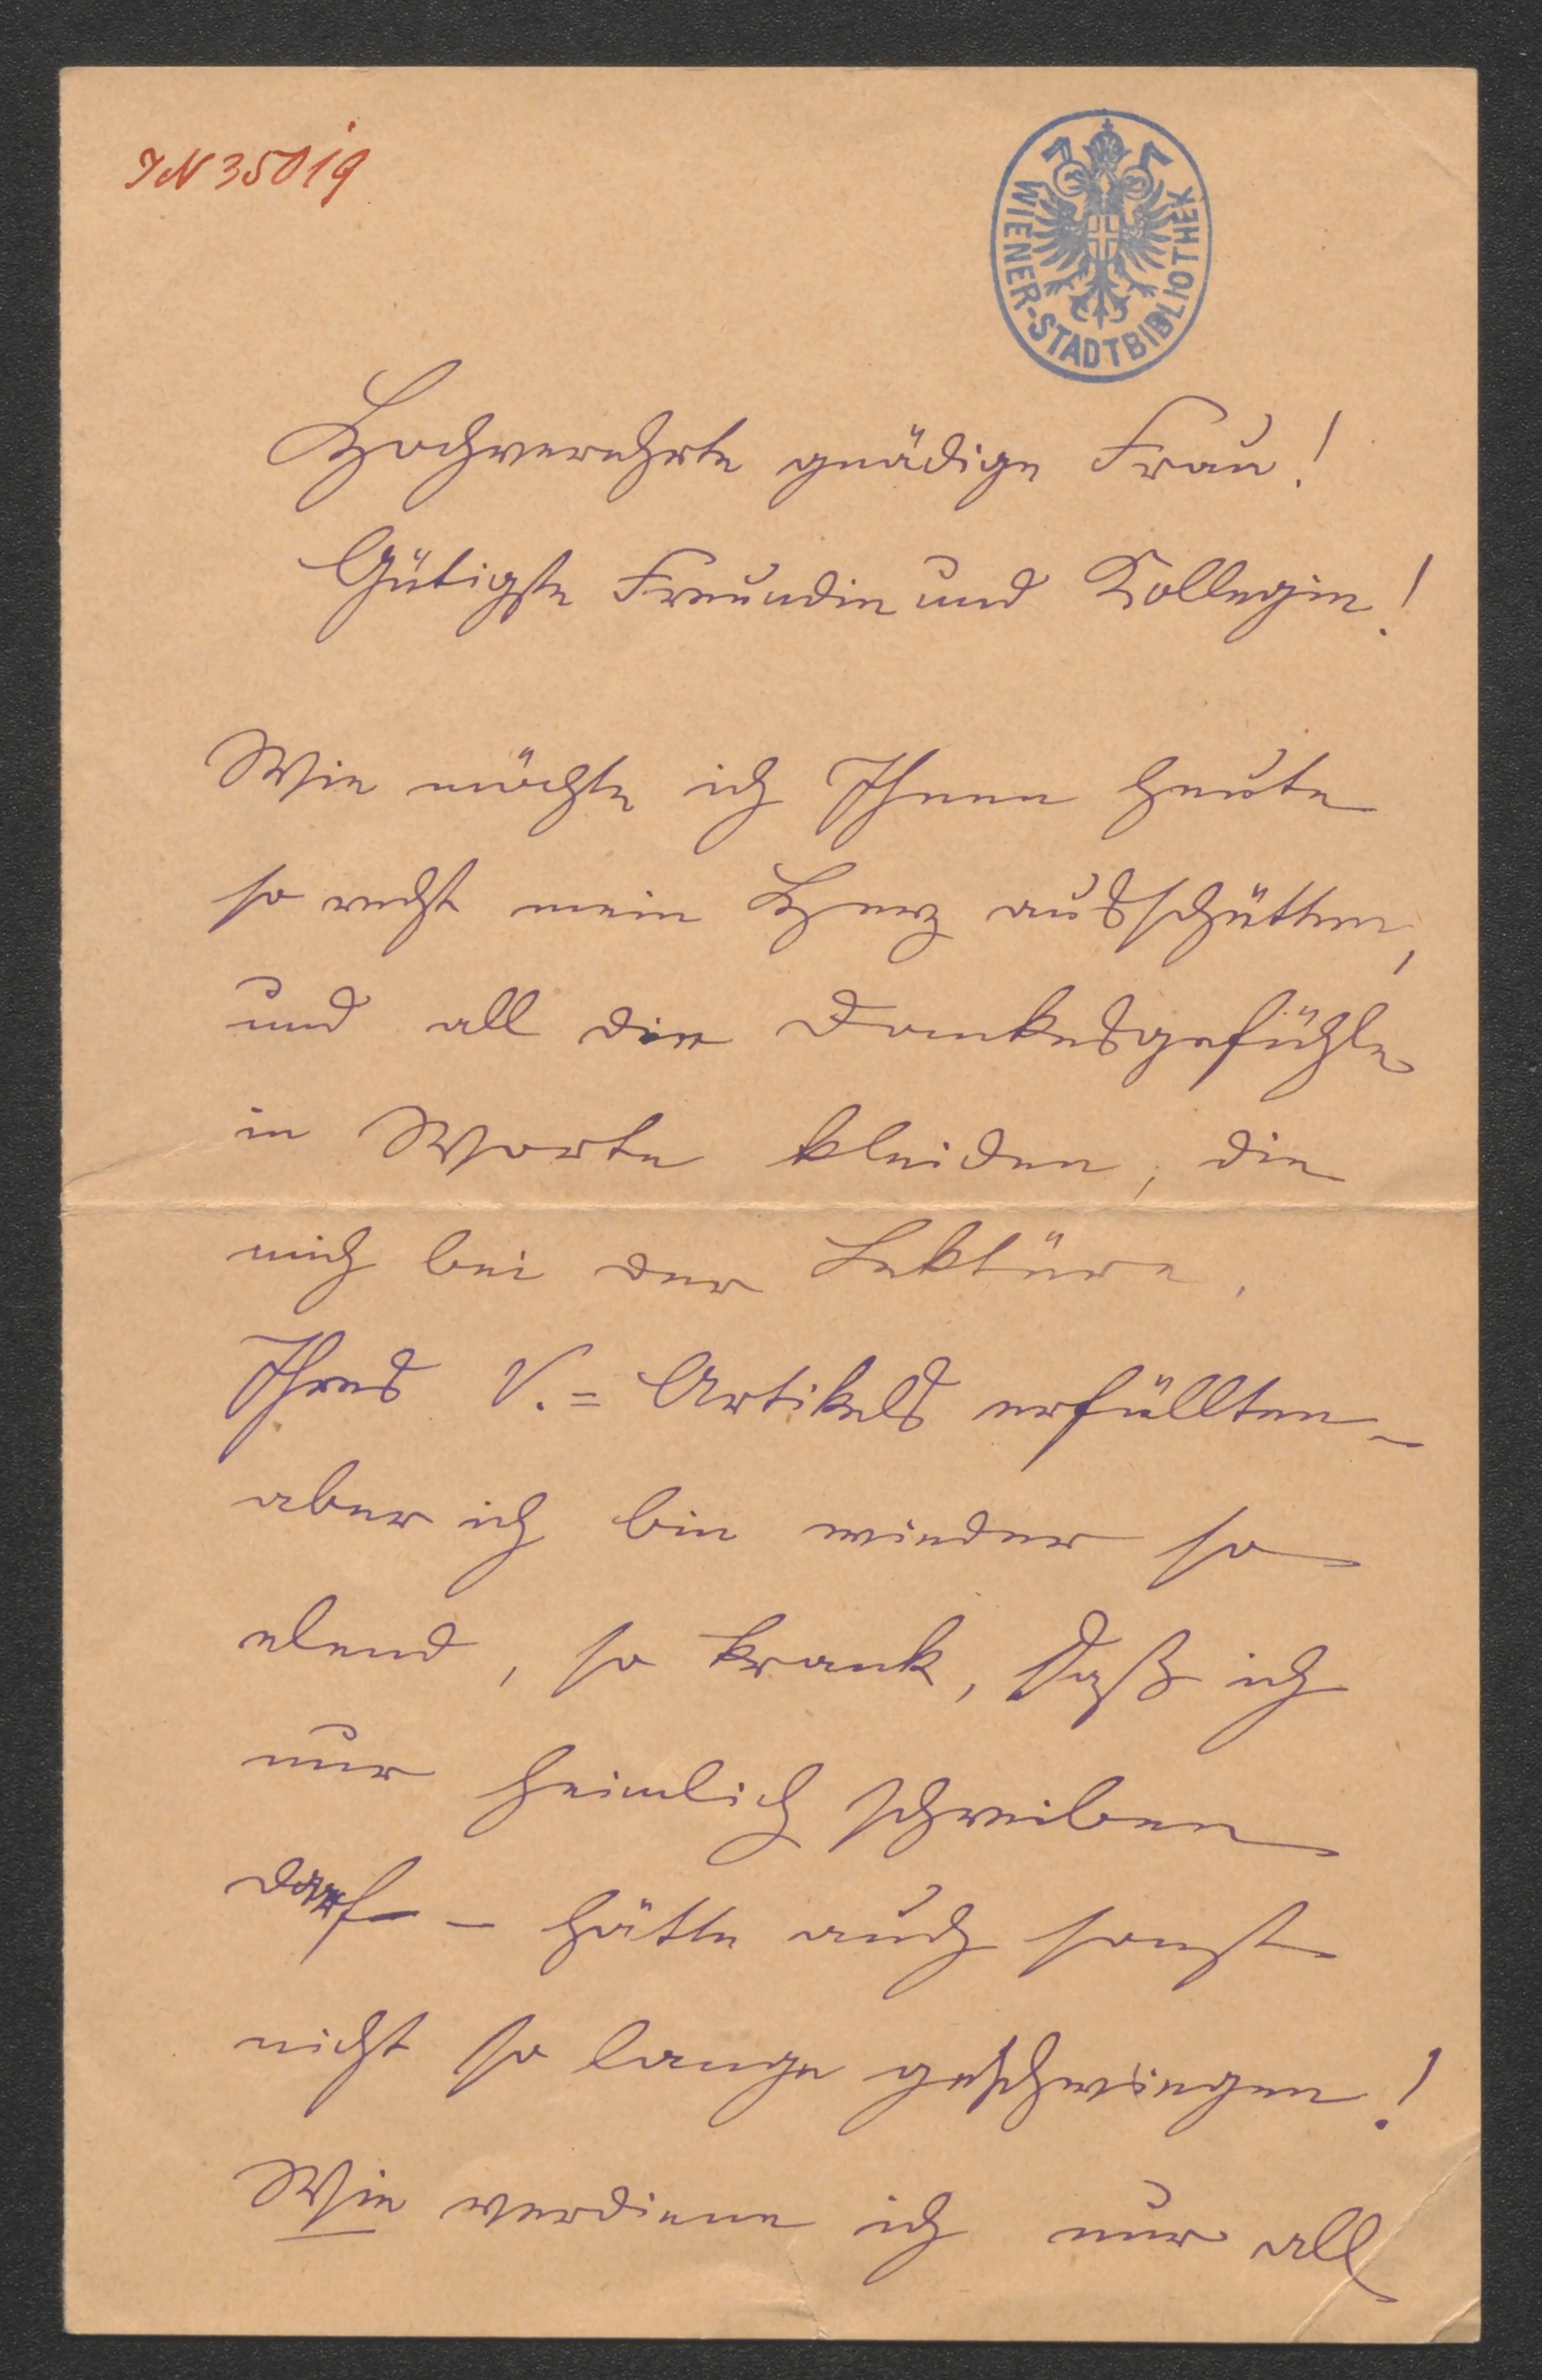 IN 35019
WIENER-STADTBIBLIOTHEK
Hochverehrte gnädige Frau!
Gütigste Freundin und Kollegin!
Wie möchte ich Ihnen heute
so recht mein Herz ausschütten,
und all die Dankesgefühle
in Worte kleiden, die
mich bei der Lektüre
Ihres V.= Artikels erfüllten –
aber ich bin wieder so
elend, so krank, daß ich
nur heimlich schreiben
darf – hätte auch sonst
nicht so lange geschwiegen!
Wie verdiene ich nur all